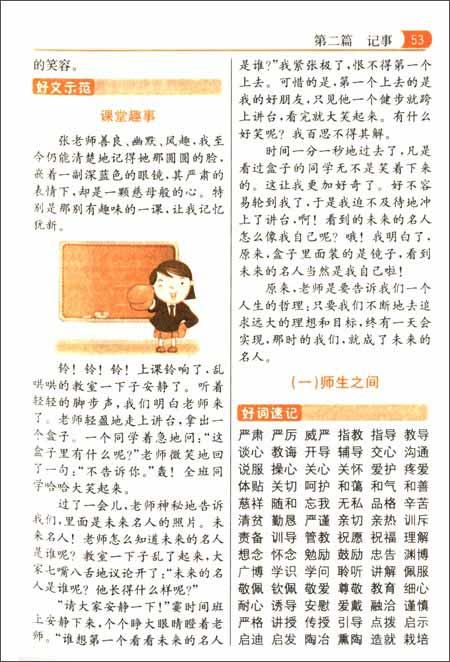 第二篇 记事 53
的笑容。
好文示范
课堂趣事
张老师善良、幽默、风趣，我至
今仍能清楚地记得她那圆圆的脸，
嵌着一副深蓝色的眼镜，其严肃的
表情下，却是一颗慈母般的心。特
别是那别有趣味的一课，让我记忆
犹新。
铃！铃！铃！上课铃响了，乱
哄哄的教室一下子安静了。听着
轻轻的脚步声，我们明白老师来
了。老师轻盈地走上讲台，拿出一
个盒子。一个同学着急地问：“这
盒子里有什么呢？”老师微笑地回
了一句：“不告诉你。”轰！全班同
学哈哈大笑起来。
过了一会儿，老师神秘地告诉
我们，里面是未来名人的照片。未
来名人！老师怎么知道未来的名人
是谁呢？教室一下子乱了起来，大
家七嘴八舌地议论开了：“未来的名
人是谁呢？他长得什么样呢？”
“请大家安静一下！”霎时间班
上安静下来，个个睁大眼睛瞪着老
师。“谁想第一个看看未来的名人
是谁？”我紧张极了，恨不得第一个
上去。可惜的是，第一个上去的是
我的好朋友，只见他一个健步就跨
上讲台，看完就大笑起来。有什么
好笑呢？我百思不得其解。
时间一分一秒地过去了，凡是
看过盒子的同学无不是笑着下来
的。这让我更加好奇了。好不容
易轮到我了，于是我迫不及待地冲
上了讲台，啊！看到的未来的名人
怎么像我自己呢？哦！我明白了，
原来，盒子里面装的是镜子，看到
未来的名人当然是我自己啦！
原来，老师是要告诉我们一个
人生的哲理：只要我们不断地去追
求远大的理想和目标，终有一天会
实现，那时的我们，就成了未来的
名人。
（一）师生之间
好词速记
严肃 严厉 威严 指教 指导 教导
谈心 教诲 开导 辅导 交心 沟通
说服 操心 关心 关怀 爱护 疼爱
体贴 关切 呵护 和蔼 和气 和善
慈祥 随和 忘我 无私 品格 辛苦
清贫 勤恳 严谨 亲切 亲热 训斥
责备 训导 管教 祝愿 祝福 理解
想念 怀念 勉励 鼓励 忠告 渊博
广博 学识 学问 聆听 讲解 佩服
敬佩 钦佩 敬爱 尊敬 教育 细心
耐心 诱导 安慰 爱戴 融洽 谨慎
严格 讲授 传授 引导 点拨 启示
启迪 启发 陶冶 熏陶 造就 栽培